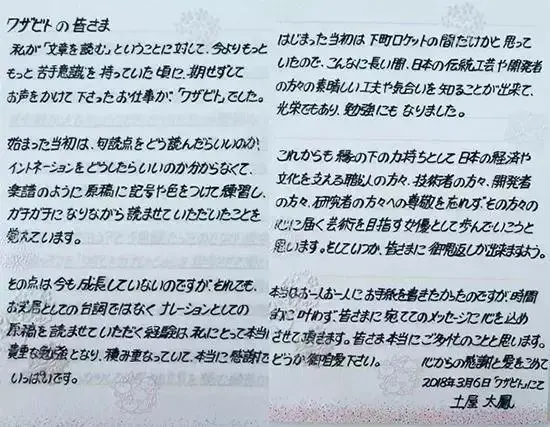 ワザビトの皆さま
私が「文章を読む」ということに対して、今よりもっと
もっと苦手意識を持っていた頃に、期せずして
お声をかけて下さったお仕事が、「ワザビト」でした。
始まった当初は、句読点をどう読んだらいいのか、
イントネーションをどうしたらいいのか分からなくて、
楽譜のように原稿に記号や色をつけて練習し、
ガチガチになりながら読ませていただいたことを
覚えています。
その点は今も成長していないのですが、それでも、
お芝居としての台詞ではなくナレーションとしての
原稿を読ませていただく経験は、私にとって本当に
貴重な勉強となり、積み重なっていて、本当に感謝で
いっぱいです。
はじまった当初は下町ロケットの間だけかと思って
いたので、こんなに長い間、日本の伝統工芸や開発者
の方々の素晴しい工夫や気合いを知ることが出来て、
光栄でもあり、勉強にもなりました。
これからも縁の下の力持ちとして日本の経済や
文化を支える職人の方々、技術者の方々、開発者
の方々、研究者の方々への尊敬を忘れず、その方々の
心に届く芸術を目指す女優として歩んでいこうと
思います。そしていつか、皆さまに御恩返しが出来ますよう。
本当はお一人お一人にお手紙を書きたかったのですが、時間
的に叶わず、皆さまに宛ててのメッセージに心を込め
させて頂きます。皆さま本当にご多忙のことと思います。
どうか御自愛下さい。 心からの感謝と愛をこめて
2018年3月6日「ワザビト」にて
土屋 太鳳